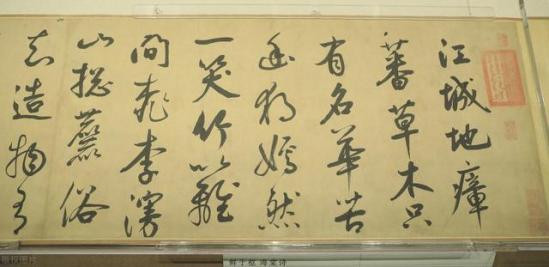 江城地瘴
蕃草木只
有名華苦
幽独嫣然
一笑竹籬
間桃李漫
山総麤俗
知造物有
鲜于枢 海棠诗